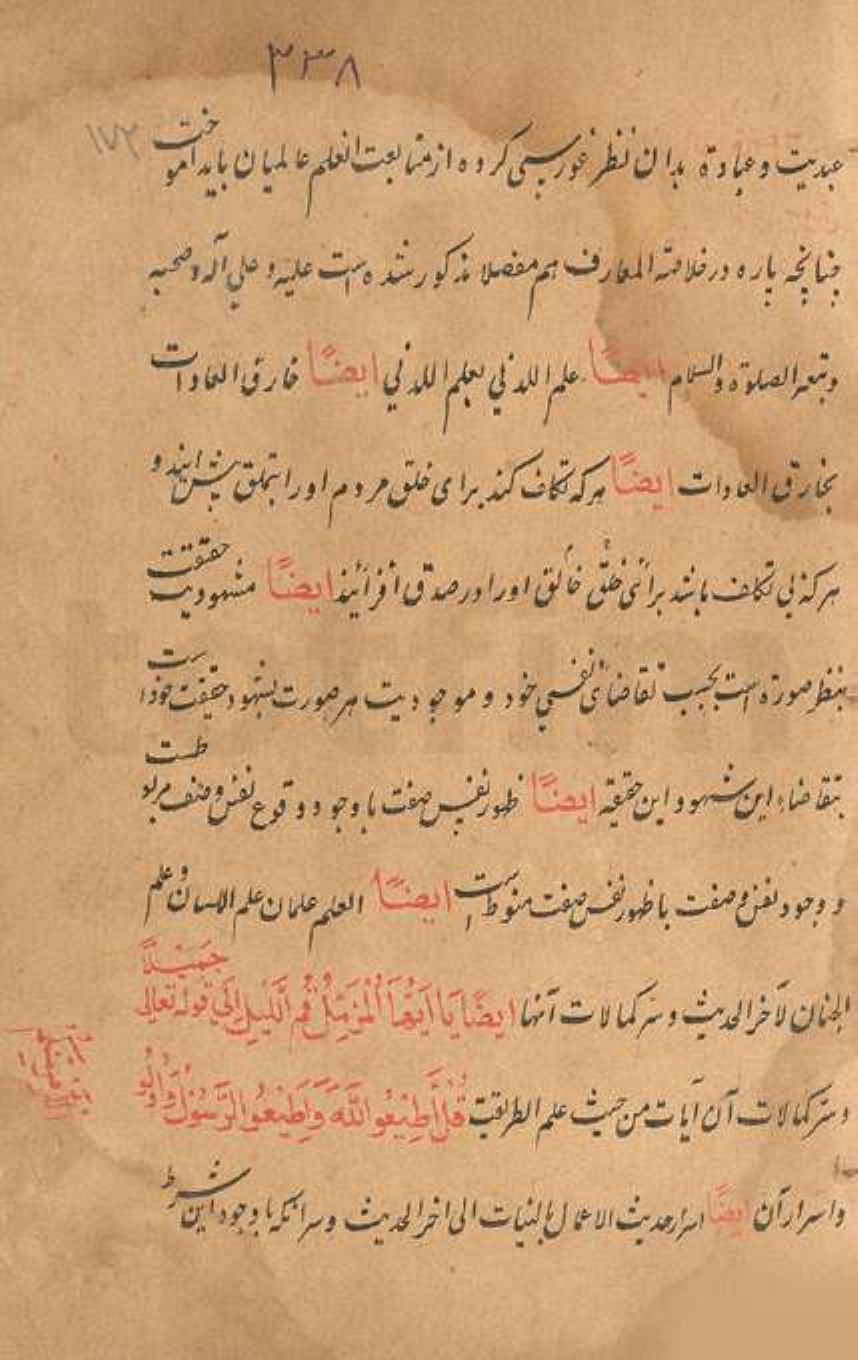 ۳۳۸
۱۷۲
عبدیت و عبادة بدان نظر غوررسی کرده از متابعت العلم عالمیان باید آموخت
چنانچه پاره در خلاصة المعارف هم مفصلا مذکور شده است علیه و علی آله و صحبه
وتبعه الصلوة والسلام ایضًا علم اللدنی بعلم اللدنی ایضًا خارق العادات
بخارق العادات ایضًا هر که تکلف کند برای خلق مردم او را بتملق پیش آیند و
هر که بی تکلف باشد برائی خلق خالق او را در صدق افزائید ایضًا مشهودیت حقیقت
بنظر صورة است بحسب تقاضائی نفسی خود و موجودیت هر صورت بشهود حقیقت خود است
بتقاضاء این شهود و این حقیقة ایضًا ظهور نفس صفت با وجود وقوع نفس وصف مربوطست
و وجود نفس وصفت با ظهور نفس صفت منوط است ایضًا العلم علمان علم اللسان و علم
الجنان لآخر الحدیث و سر کمالات آنها ایضًا یَا اَیُّهَا الْمُزَّمِّلُ قُمِ الَّلیْلَ اِلَی قوله تعالی جَمِیْلًا
و سر کمالات آن آیات من حیث علم الطریقت قُلْ أَطِیْعُو اللَّهَ وَاَطِیْعُو الرَّسُوْلَ
واسرار آن ایضًا اسرار حدیث الاعمال بالنیات الی اخر الحدیث و سر آنکه با وجود این شرط